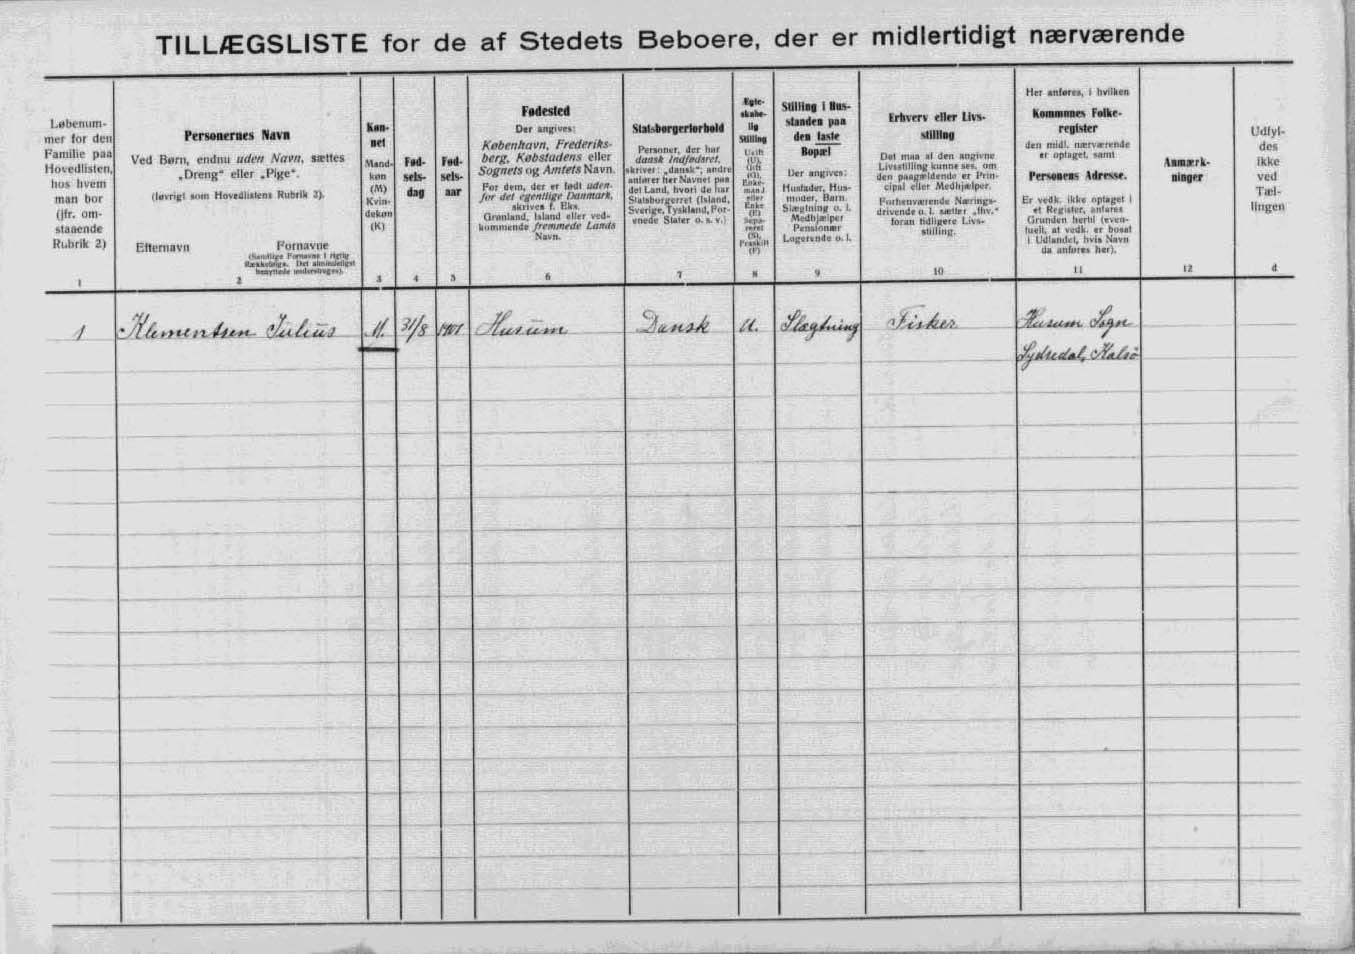 TILLÆGSLISTE for de af Stedets Beboere, der er midlertidigt nærværende
Løbenum-
mer for den
Familie paa
Hovedlisten,
hos hvem
man bor
(jfr. om-
staaende
Rubrik 2)
1
Personernes Navn
Ved Børn, endnu uden Navn, sættes
„Dreng“ eller „Pige“.
(Iøvrigt som Hovedlistens Rubrik 2).
Efternavn Fornavne
(Samtlige Fornavne i rigtig
Rækkefølge. Det almindeligst
benyttede understreges).
2
Køn-
net
Mand-
køn
(M)
Kvin-
dekøn
(K)
3
Fød-
sels-
dag
4
Fød-
sels-
aar
5
Fødested
Der angives:
København, Frederiks-
berg, Købstadens eller
Sognets og Amtets Navn.
For dem, der er født uden-
for det egentlige Danmark,
skrives f. Eks.
Grønland, Island eller ved-
kommende fremmede Lands
Navn.
6
Statsborgerforhold
Personer, der har
dansk Indfødsret,
skriver: „dansk“; andre
anfører her Navnet paa
det Land, hvori de har
Statsborgerret (Island,
Sverige, Tyskland, For-
enede Stater o. s. v.)
7
Ægte-
skabe-
lig
Stilling
Ugift
(U),
Gift
(G),
Enke-
mand
eller
Enke
(E)
Sepa-
reret
(S),
Fraskilt
(F)
8
Stilling i Hus-
standen paa
den faste
Bopæl
Der angives:
Husfader, Hus-
moder, Barn,
Slægtning o. l.
Medhjælper
Pensionær
Logerende o. l.
9
Erhverv eller Livs-
stilling
Det maa af den angivne
Livsstilling kunne ses, om
den paagældende er Prin-
cipal eller Medhjælper.
Forhenværende Nærings-
drivende o. l. sætter „fhv.“
foran tidligere Livs-
stilling.
10
Her anføres, i hvilken
Kommunes Folke-
register
den midl. nærværende
er optaget, samt
Personens Adresse.
Er vedk. ikke optaget i
et Register, anføres
Grunden hertil (even-
tuelt, at vedk. er bosat
i Udlandet, hvis Navn
da anføres her).
11
Anmærk-
ninger
12
Udfyl-
des
ikke
ved
Tæl-
lingen
d
1 Klementsen Júlíus M. 31/8 1901 Husum Dansk U. Slægtning Fisker Husum Sogn
Sydredal, Kalsö